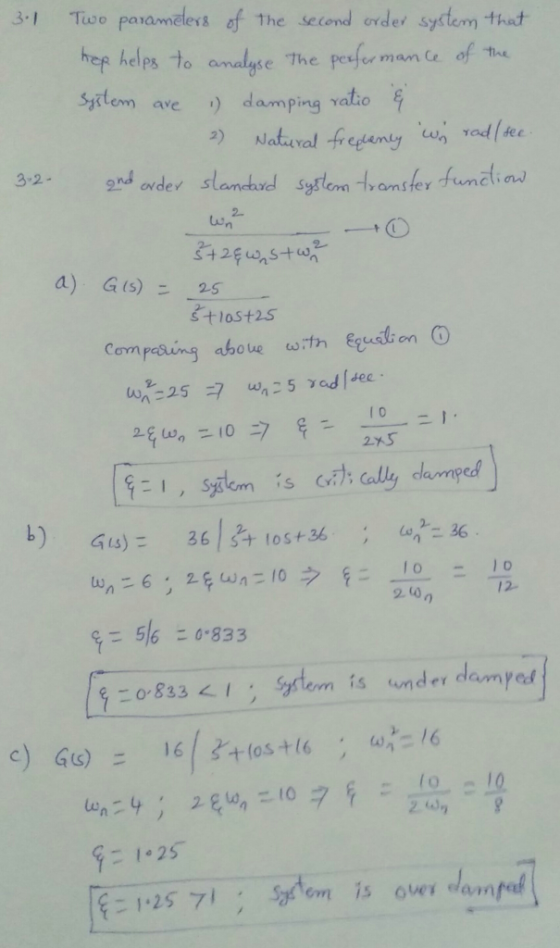 3.1 Two parameters of the second order system that
hep helps to analyse the performance of the
system are 1) damping ratio 'ξ'
2) Natural freqency 'ωn' rad/sec.
3.2. 2nd order standard system transfer function
ωn² / s²+2ξωns+ωn² → ①
a) G(s) = 25 / s²+10s+25
comparing above with Equation ①
ωn²=25 ⇒ ωn=5 rad/sec.
2ξωn = 10 ⇒ ξ = 10 / 2×5 = 1.
ξ=1, system is critically damped
b) G(s) = 36/s²+10s+36 ; ωn²=36.
ωn = 6 ; 2ξωn=10 ⇒ ξ = 10 / 2ωn = 10 / 12
ξ = 5/6 = 0.833
ξ = 0.833 < 1 ; system is under damped
c) G(s) = 16/s²+10s+16 ; ωn²=16
ωn=4 ; 2ξωn = 10 ⇒ ξ = 10 / 2ωn = 10 / 8
ξ = 1.25
ξ = 1.25 >1 ; system is over damped